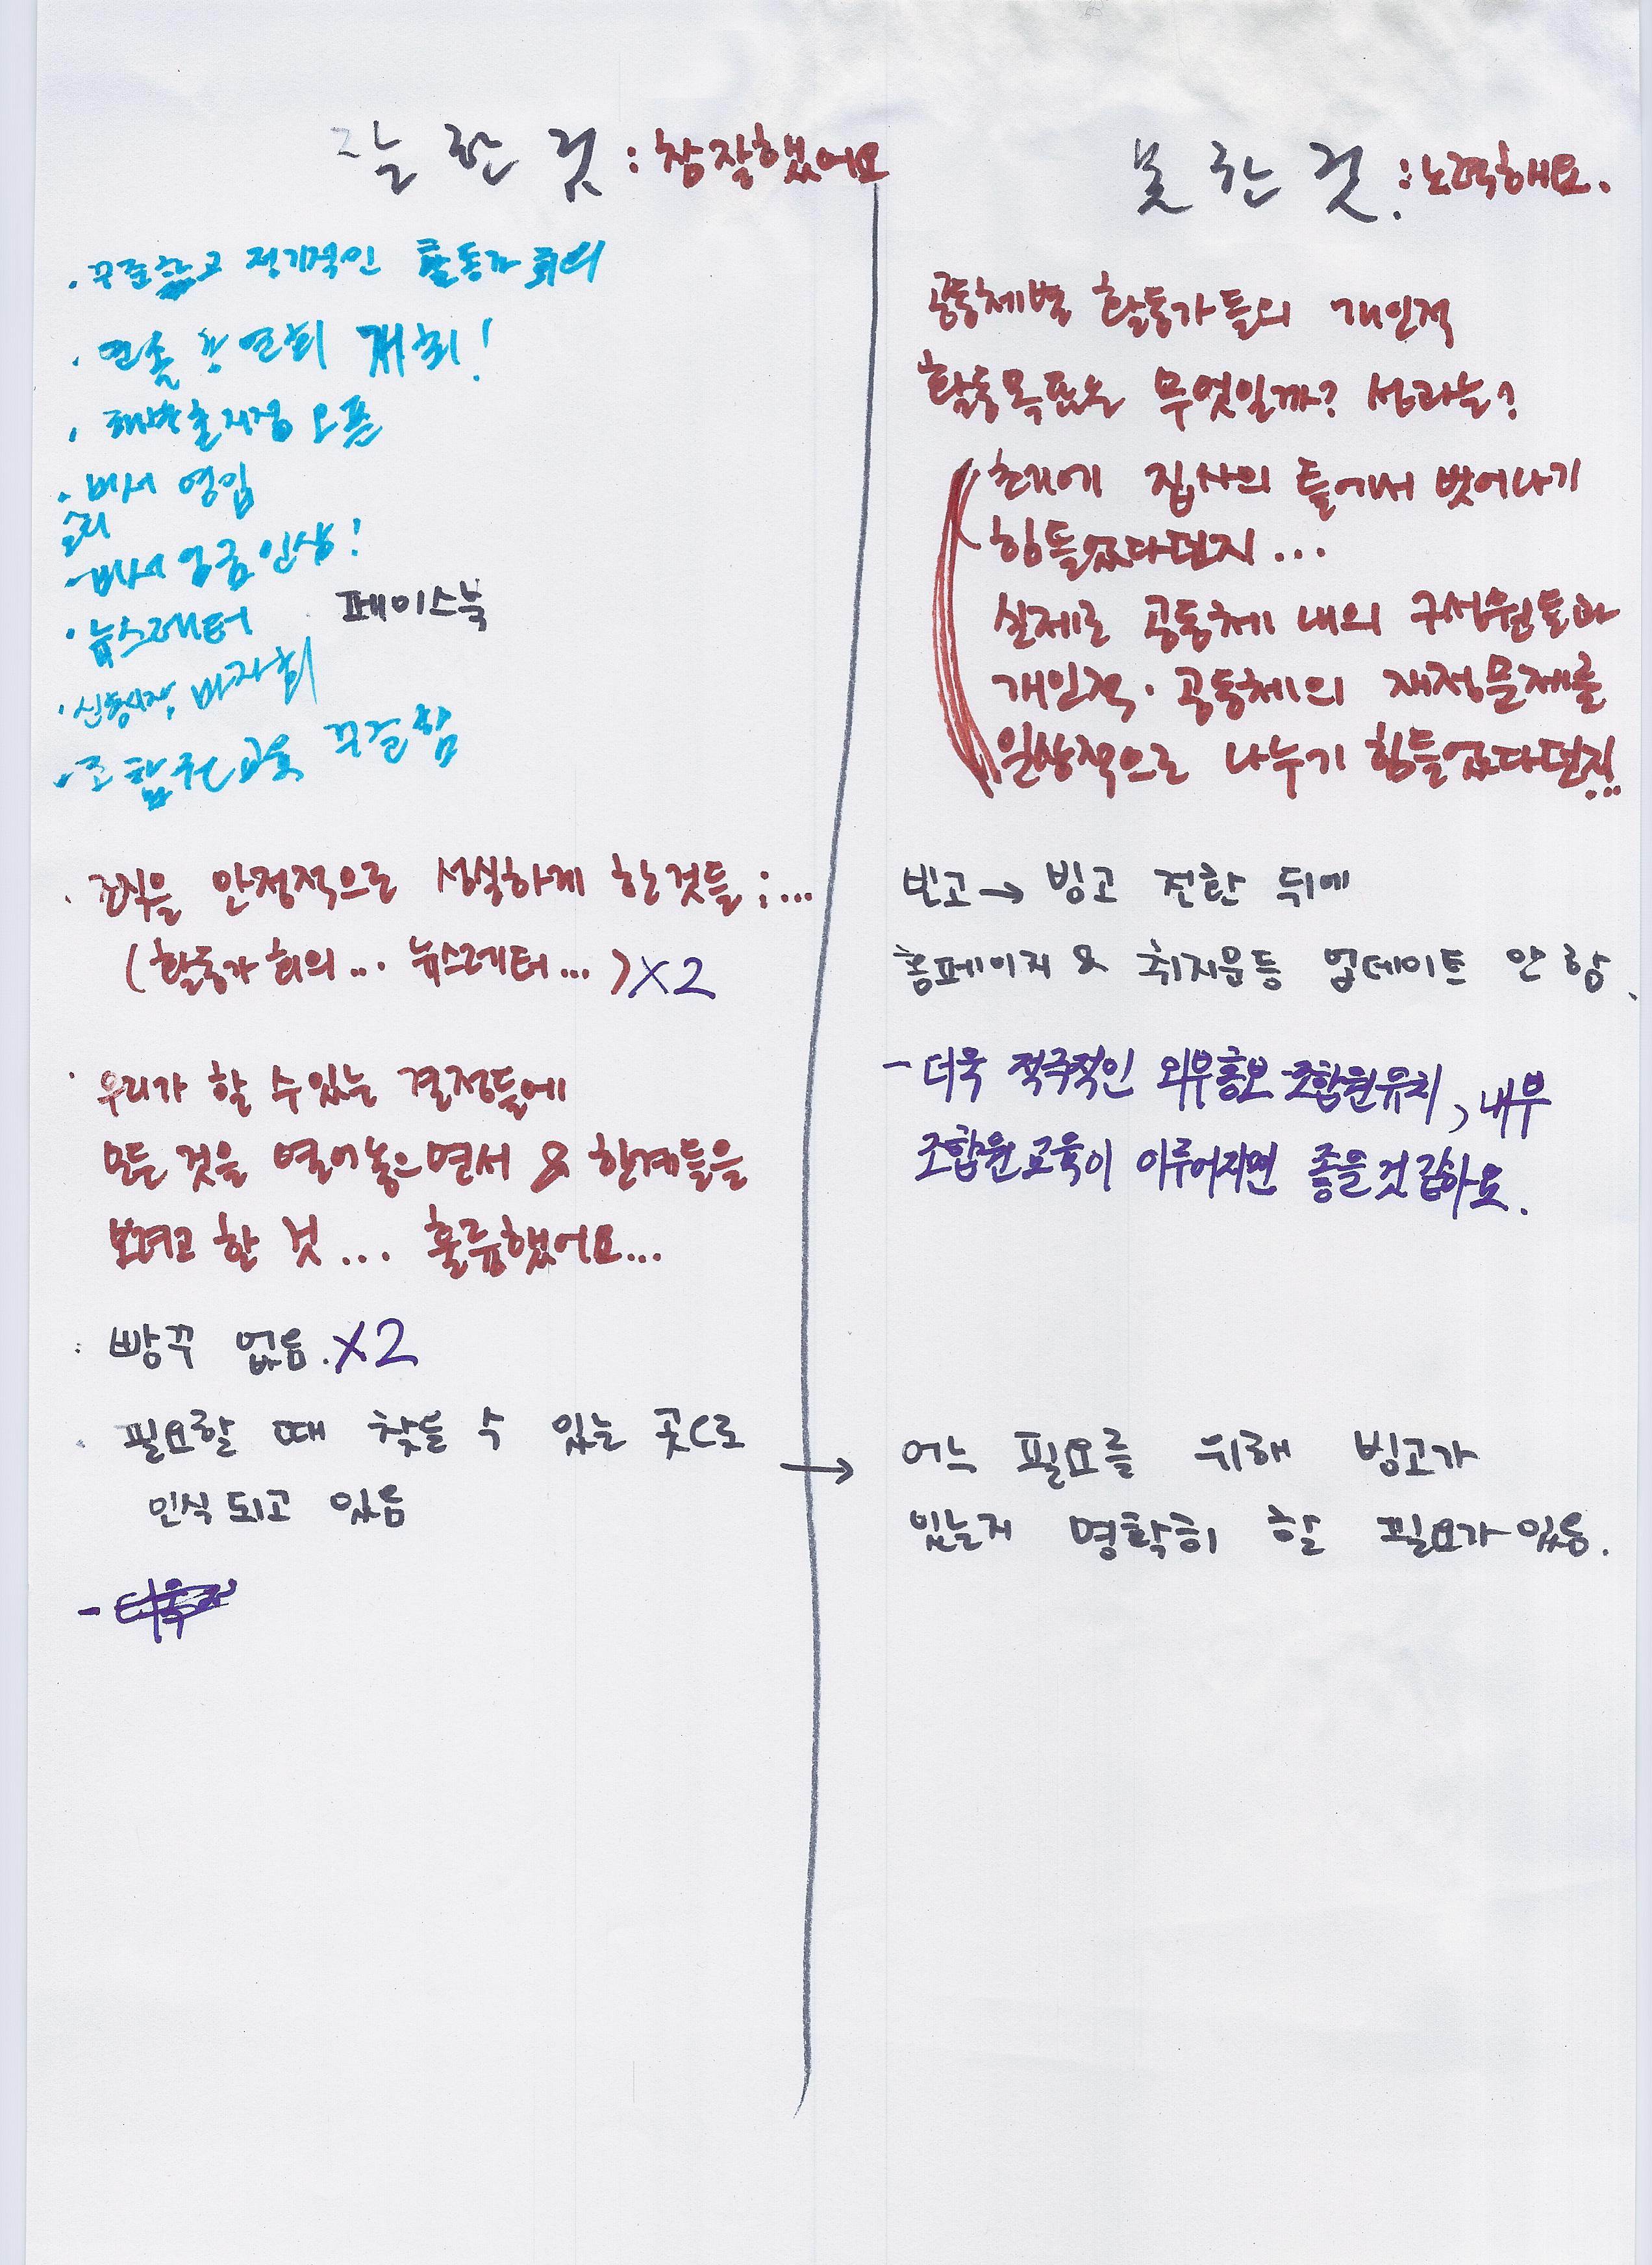 잘 한 것 : 참 잘했어요
· 꾸준하고 정기적인 활동가 회의
· 연속 강연회 개최!
· 해방촌지점 오픈
· 비서 영입
- 비서 임금인상!
· 뉴스레터
· 페이스북
· 신흥시장, 바자회
- 조합원교육
· 조직을 안정적으로 성실하게 한것들 : ...
(활동가 회의 ... 뉴스레터 ... ) X2
· 우리가 할 수 있는 결정들에
모든 것을 열어놓으면서 & 한계들을
보려고 한 것 ... 훌륭했어요 ...
· 빵꾸 없음. X2
· 필요할 때 찾을 수 있는 곳으로
인식되고 있음
못 한 것. : 노력해요.
공동체별 활동가들의 개인적
활동목표는 무엇일까? 성과는?
( 초기에 집사의 틀에서 벗어나기
힘들었다던지 ...
실제로 공동체 내의 구성원들과
개인적·공동체의 재정문제를
일상적으로 나누기 힘들었다던지 ...
빈고 → 빙고 전환 뒤에
홈페이지 & 취지문등 업데이트 안 함.
- 더욱 적극적인 외부홍보 조합원유치, 내부
조합원교육이 이루어지면 좋을것 같아요.
→ 어느 필요를 위해 빙고가
있는지 명확히 할 필요가 있음.